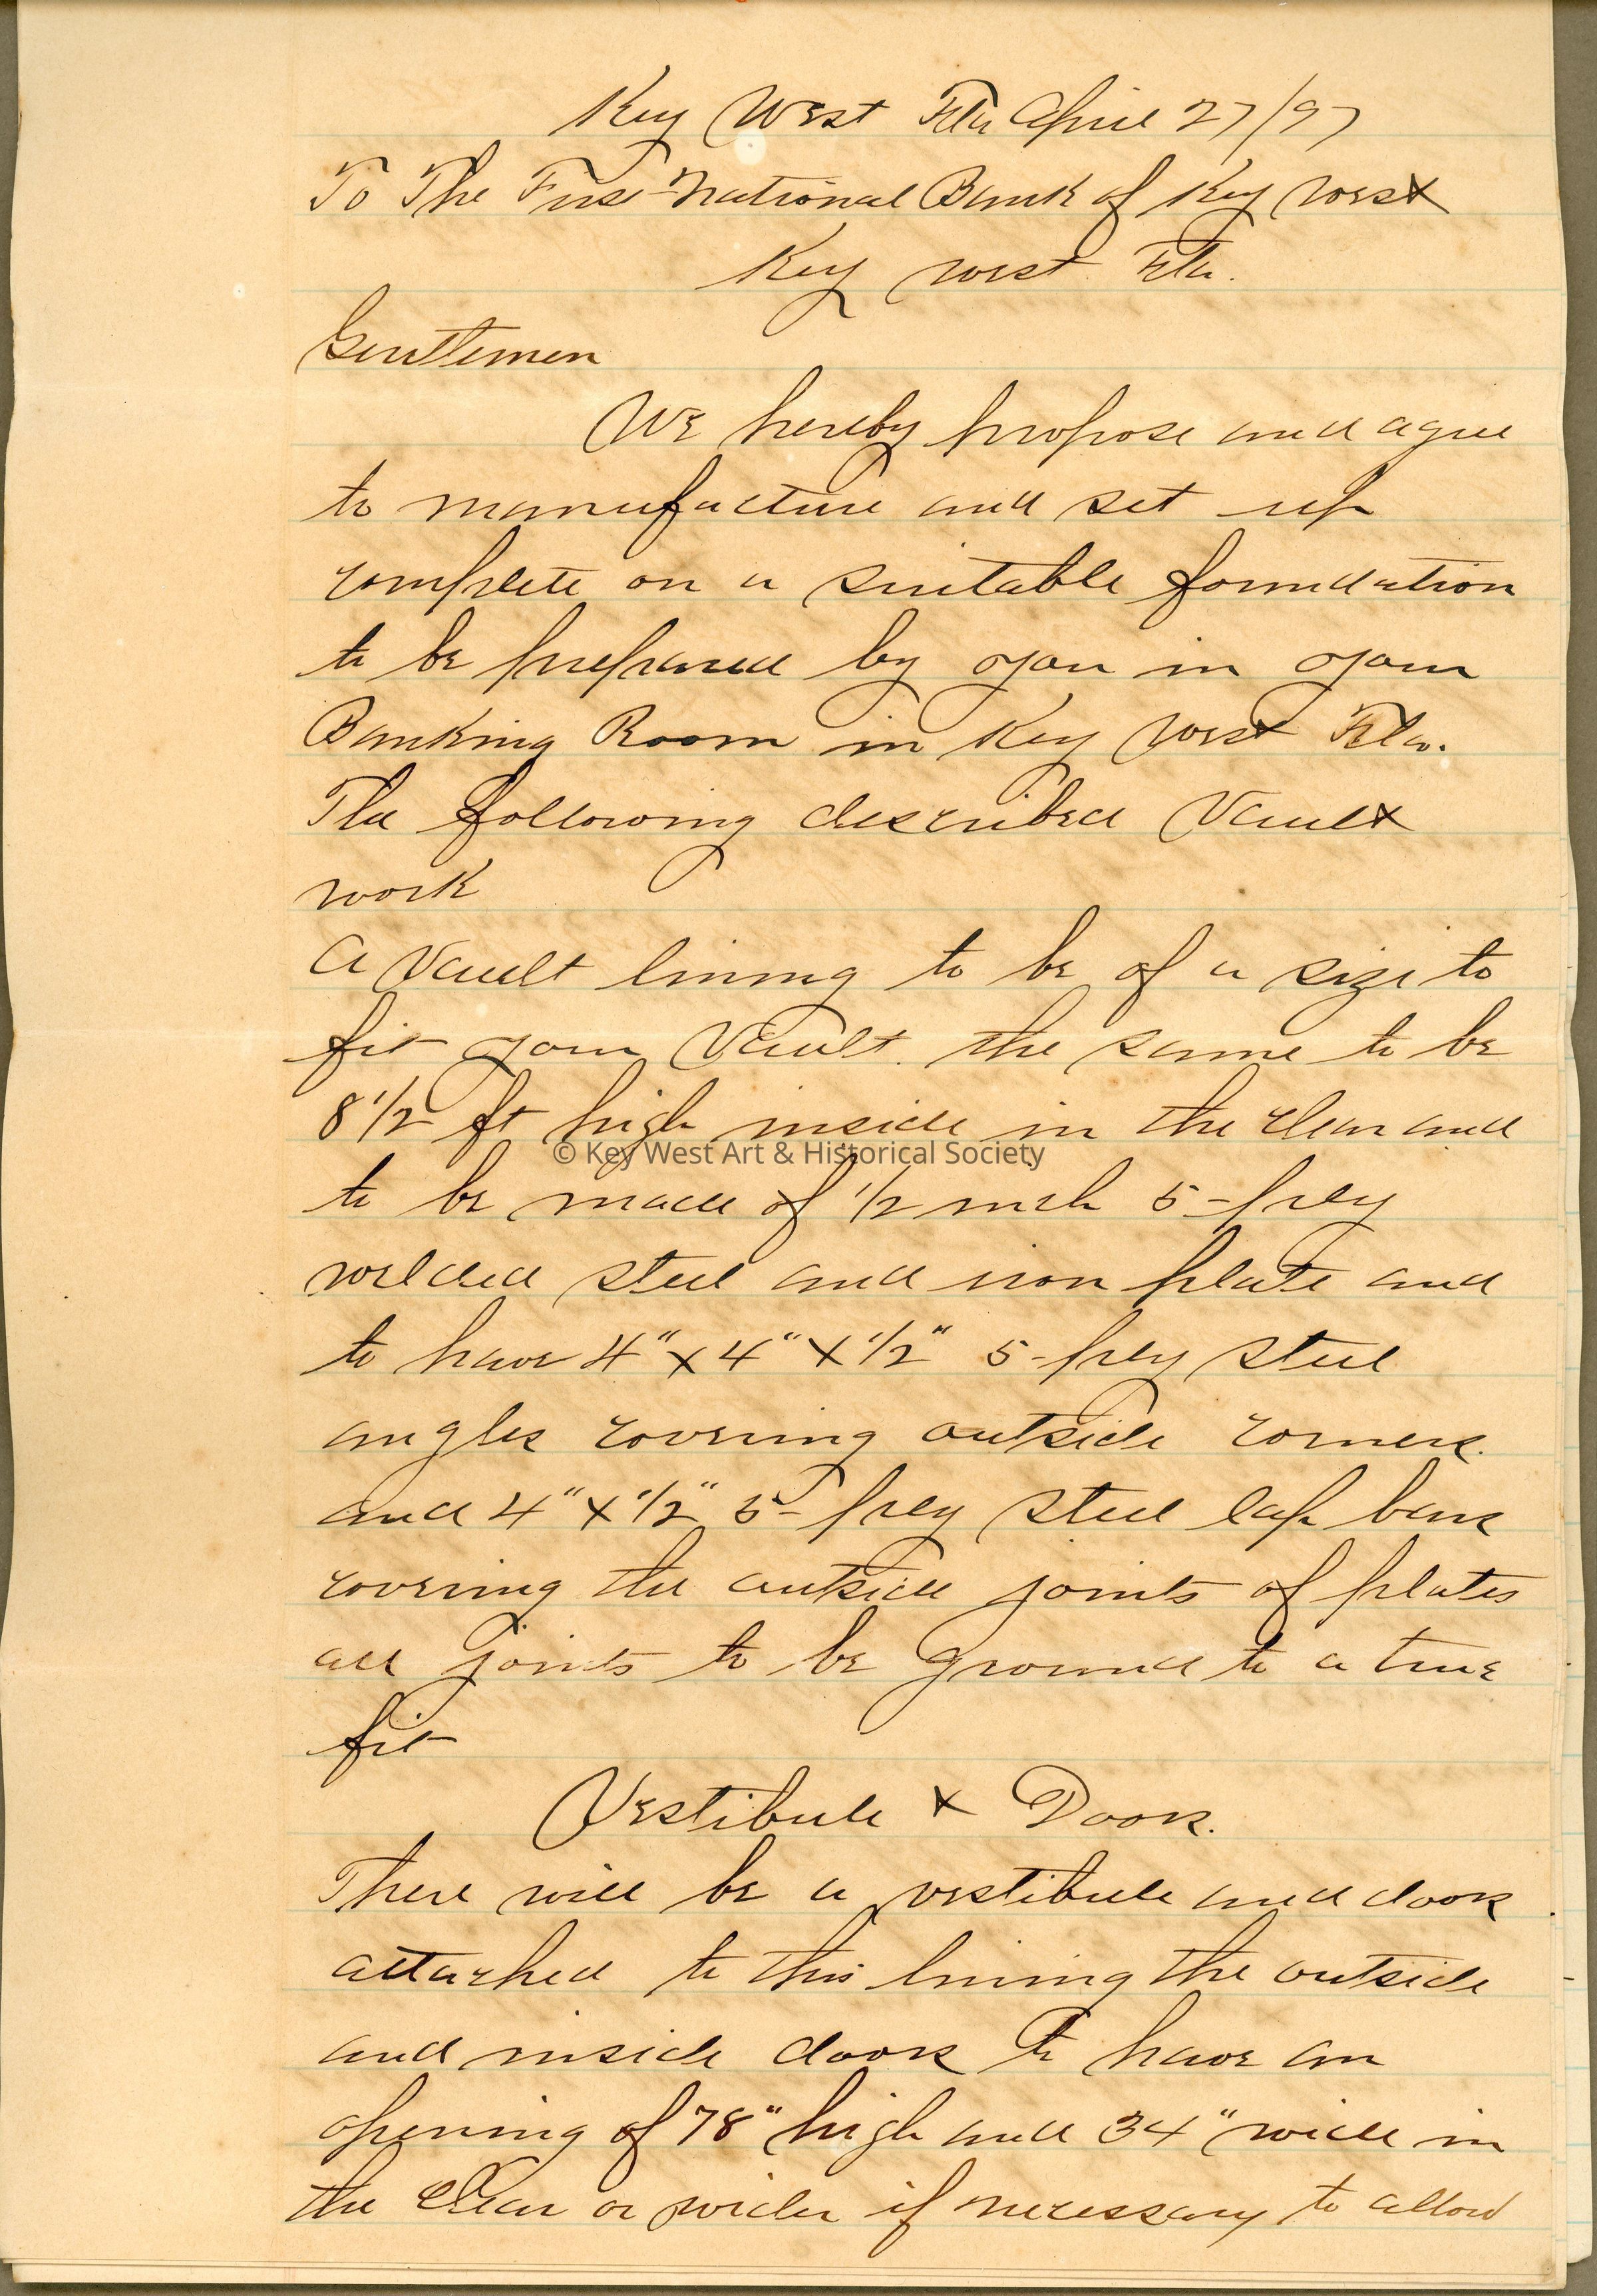 Key West Fla April 27/97
To The First National Bank of Key West
Key West Fla.
Gentlemen
We hereby propose and agree
to manufacture and set up
complete on a suitable foundation
to be prepared by you in your
Banking Room in Key West Fla.
The following described Vault
work
A Vault lining to be of a size to
fit your Vault. the same to be
8 1/2 ft high inside in the clear and
© Key West Art & Historical Society
to be made of 1/2 inch 5-ply
welded steel and iron plate and
to have 4" x 4" x 1/2" 5-ply steel
angles covering outside corners.
and 4" x 1/2" 5-ply steel lap bars
covering the outside joints of plates
all joints to be ground to a true
fit
Vestibule & Doors.
There will be a vestibule and doors
attached to this lining the outside
and inside doors to have an
opening of 78" high and 34" wide in
the clear or wider if necessary to allow